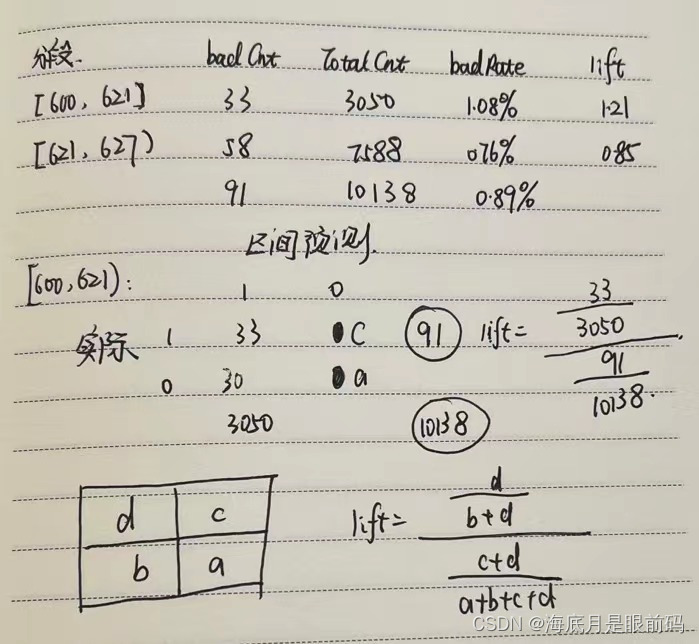 分段. bad Cnt Total Cnt bad Rate lift
[600, 621] 33 3050 1.08% 1.21
[621, 627) 58 7588 0.76% 0.85
91 10138 0.89%
区间预测.
[600, 621): 1 0
33
实际 1 33 C 91 lift= 3050
91
0 30 a 10138.
3050 10138
d
d c lift= b+d
b a c+d
a+b+c+d
CSDN @海底月是眼前码